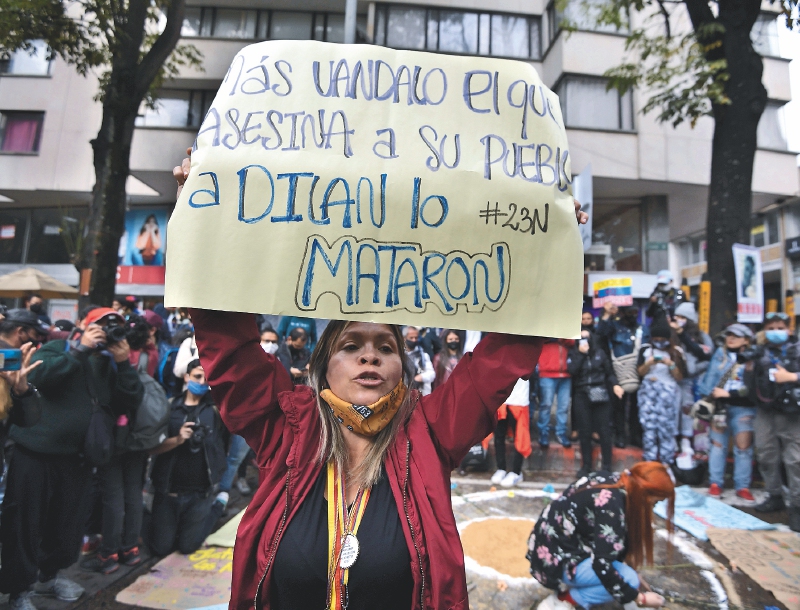 Más VANDALO el que
ASESINA a SU PUEBLO
a DILAN lo #23N
MATARON